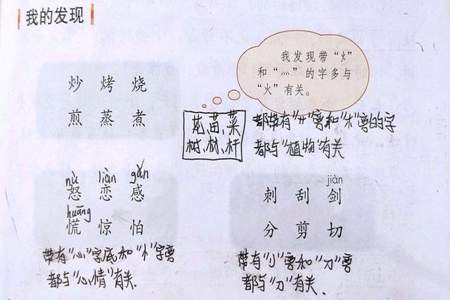 我的发现
我发现带“火”
和“灬”的字多与
“火”有关。
炒 烤 烧
煎 蒸 煮
花,苗,菜
树,林,杆
都带有“艹”旁和“木”旁的字
都与“植物”有关
nù liàn gǎn
怒 恋 感
huāng
慌 惊 怕
带有“心”字底和“忄”字旁
都与“心情”有关.
jiàn
刺 刮 剑
分 剪 切
带有“刂”旁和“刀”旁
都与“刀”有关.